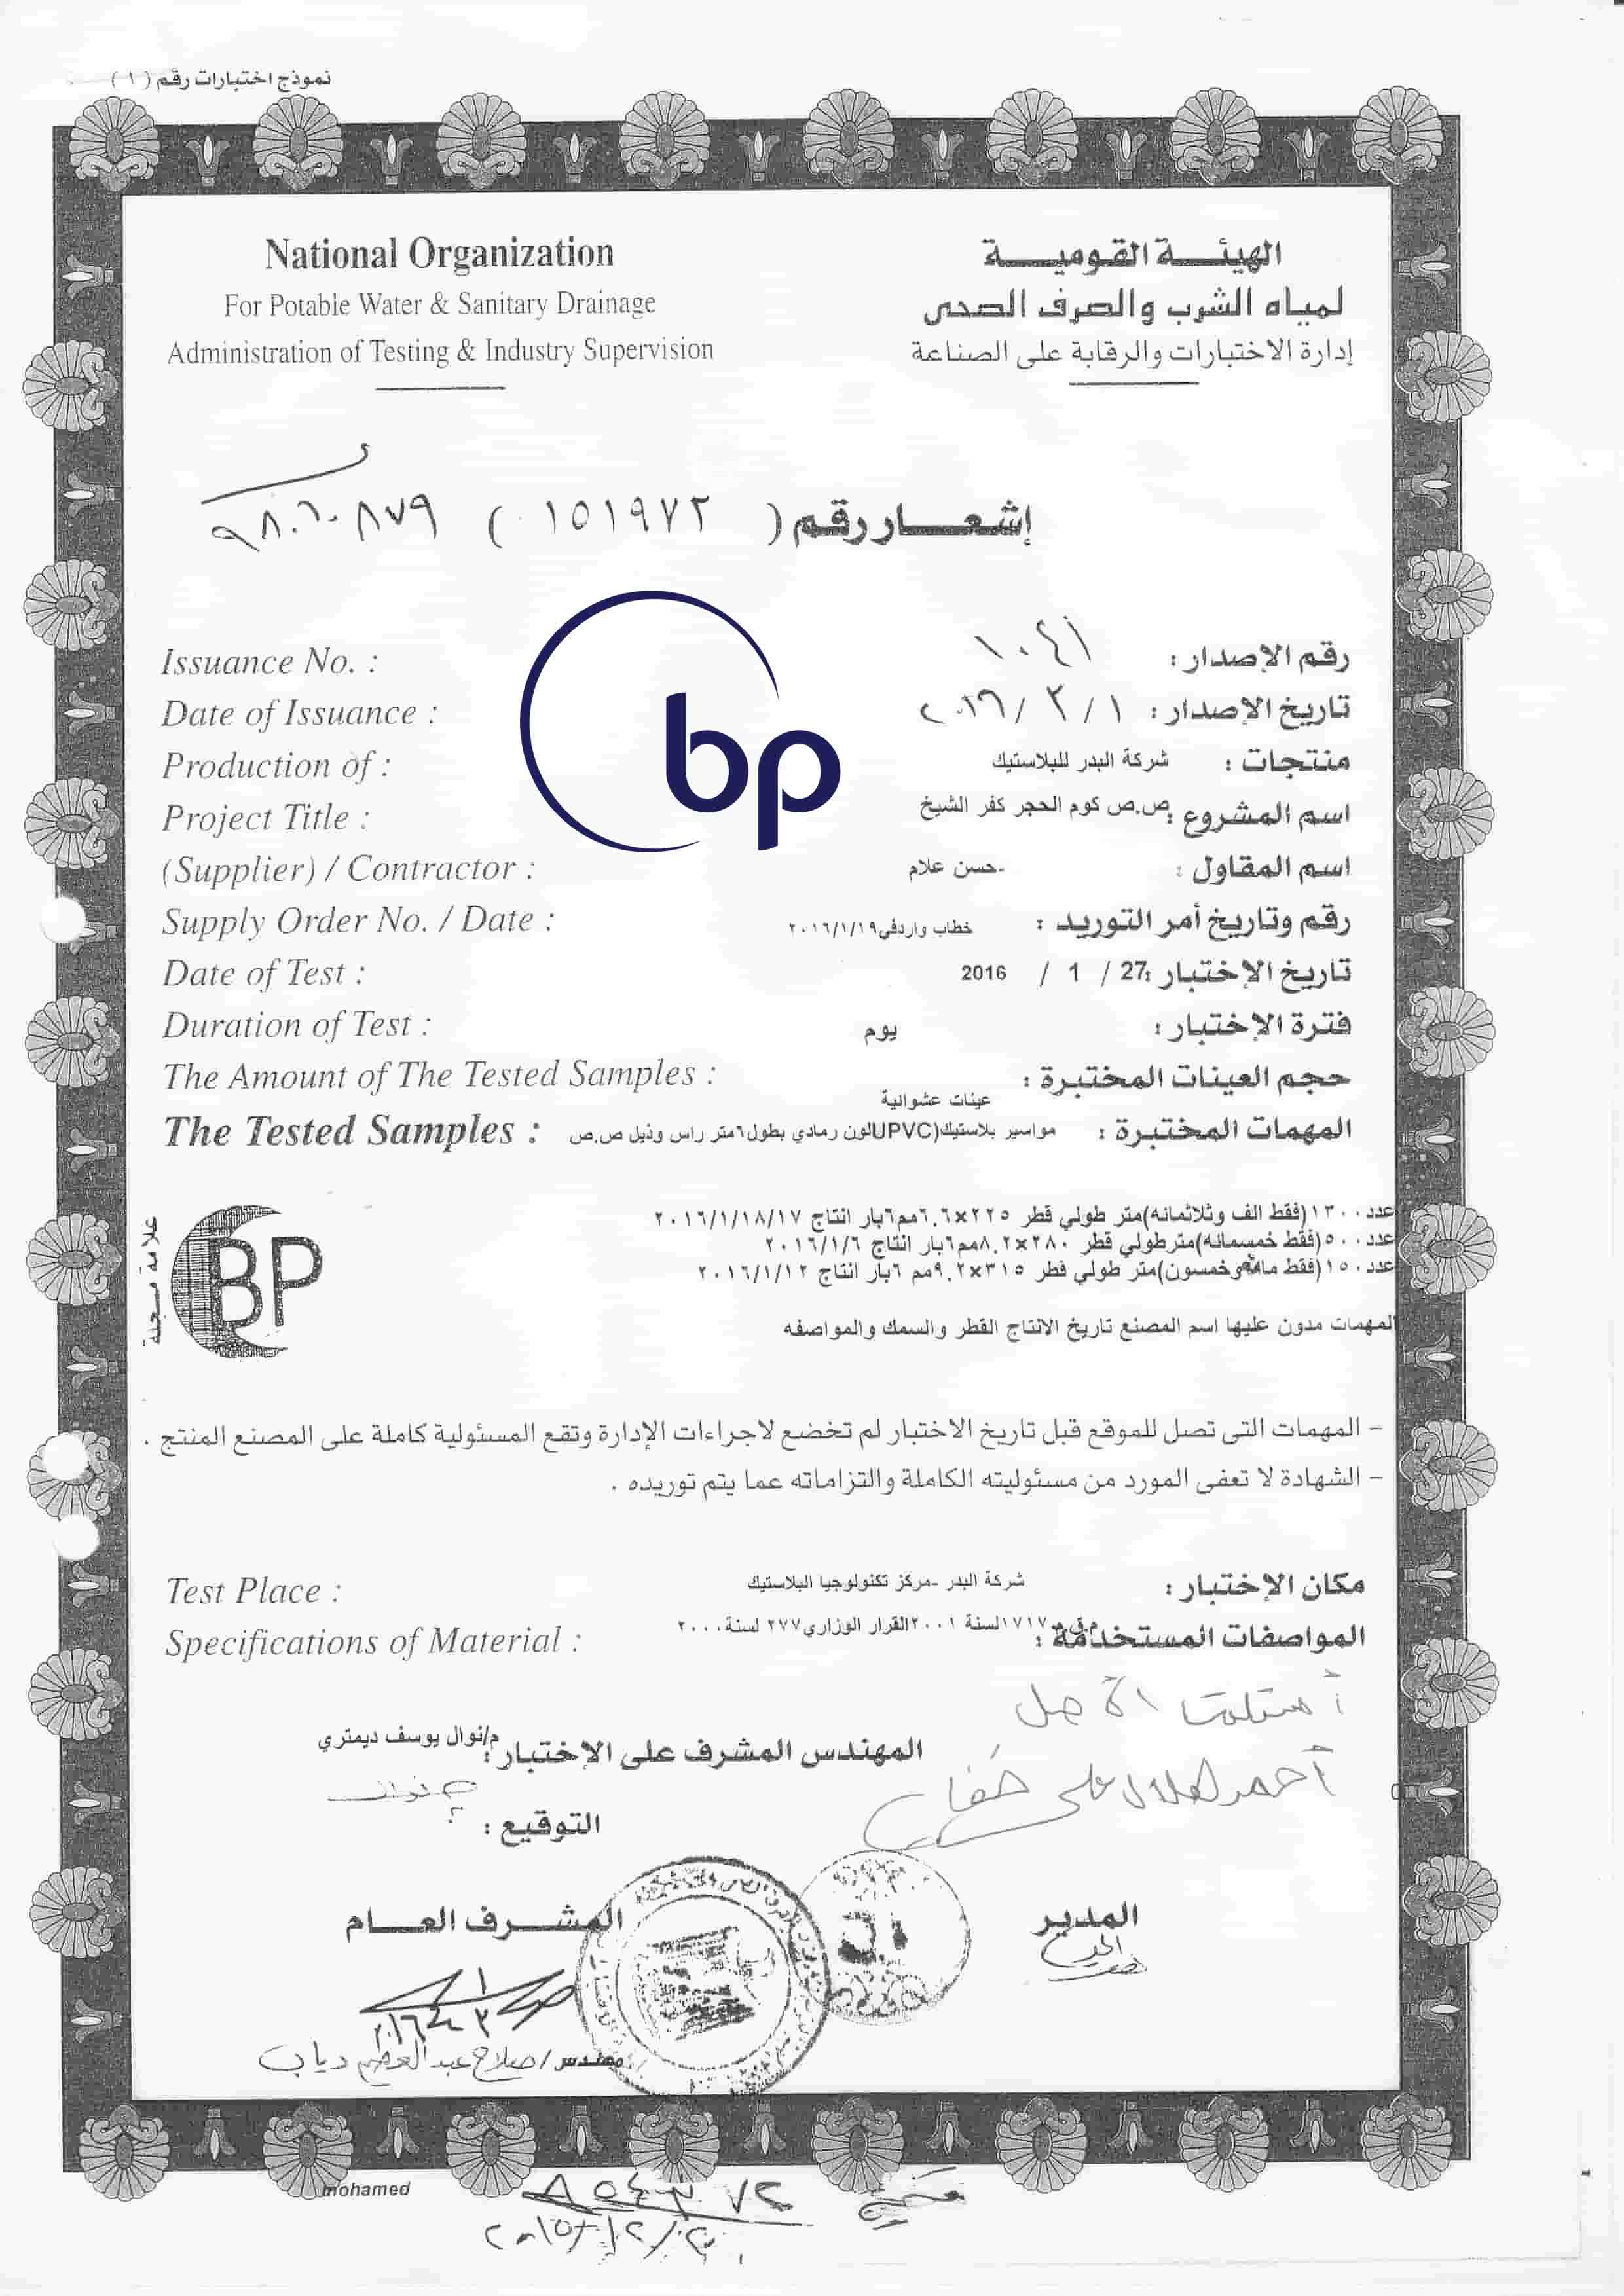 نموذج اختبارات رقم ( ١ )
National Organization
For Potable Water & Sanitary Drainage
Administration of Testing & Industry Supervision
الهيئة القومية
لمياه الشرب والصرف الصحى
إدارة الاختبارات والرقابة على الصناعة
إشعار رقم ( ١٥١٩٧٢ )
bp
Issuance No. : رقم الإصدار :
Date of Issuance : تاريخ الإصدار : ١ / ٣ / ٢٠١٦
Production of : منتجات : شركة البدر للبلاستيك
Project Title : اسم المشروع : ص.ص كوم الحجر كفر الشيخ
(Supplier) / Contractor : اسم المقاول : حسن علام-
Supply Order No. / Date : رقم وتاريخ أمر التوريد : خطاب واردفي٢٠١٦/١/١٩
Date of Test : تاريخ الإختبار : 27 / 1 / 2016
Duration of Test : فترة الإختبار : يوم
The Amount of The Tested Samples : حجم العينات المختبرة : عينات عشوائية
The Tested Samples : المهمات المختبرة : مواسير بلاستيك(UPVC)لون رمادي بطول٦متر راس وذيل ص.ص
عدد١٣٠٠(فقط الف وثلاثمائه)متر طولي قطر ٢٢٥×٦.٦مم٦بار انتاج ٢٠١٦/١/١٨/١٧
عدد٥٠٠(فقط خمسمائه)مترطولي قطر ٢٨٠×٨.٢مم٦بار انتاج ٢٠١٦/١/٦
عدد١٥٠(فقط مائه وخمسون)متر طولي قطر ٣١٥×٩.٢مم ٦بار انتاج ٢٠١٦/١/١٢
المهمات مدون عليها اسم المصنع تاريخ الانتاج القطر والسمك والمواصفه
علامة مسجلة
BP
- المهمات التى تصل للموقع قبل تاريخ الاختبار لم تخضع لاجراءات الإدارة وتقع المسئولية كاملة على المصنع المنتج .
- الشهادة لا تعفى المورد من مسئوليته الكاملة والتزاماته عما يتم توريده .
Test Place : مكان الإختبار : شركة البدر -مركز تكنولوجيا البلاستيك
Specifications of Material : المواصفات المستخدمة : م.ق.م١٧١٧لسنة ٢٠٠١القرار الوزاري٢٧٧ لسنة٢٠٠٠
أستلمت الأصل
المهندس المشرف على الإختبار : م/نوال يوسف ديمتري
التوقيع :
المشرف العام
المدير
مهندس/ صلاح عبد العظيم دياب
mohamed